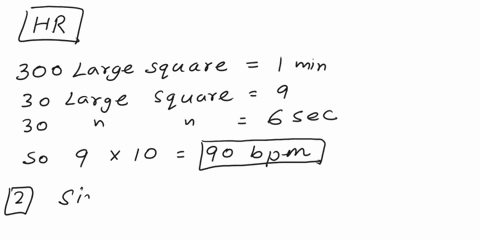 HR
300 Large square = 1 min
30 Large square = 9
30 n n = 6 sec
so 9 × 10 = 90 bpm
2 Si